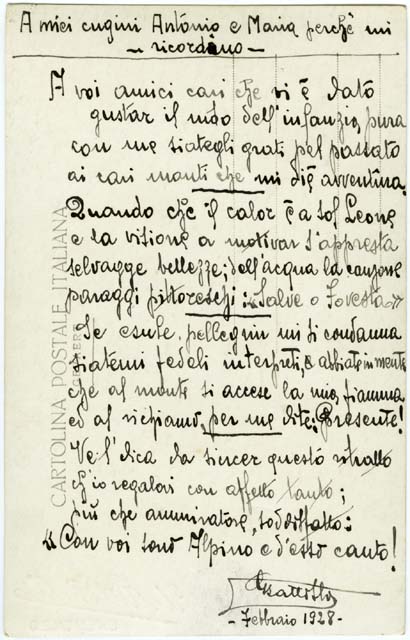 A miei cugini Antonio e Maria perchè mi
- ricordino -
A voi amici cari che vi è dato
gustar il nido dell'infanzia, pura
con me siategli grati pel passato
ai cari monti che mi diè avventura.
Quando che il calor è a sol Leone
e la visione a motivar s'appresta
selvagge bellezze; dell'acqua la canzone
paraggi pittoreschi: «Salve o Foresta»
Se esule, pellegrin mi si condanna
siatemi fedeli interpreti, e abbiate in mente
che al monte si accese la mia fiamma
ed al richiamo, per me dite: Presente!
Ve l'dica da sincer questo ritratto
ch'io regalovi con affetto tanto;
più che ammiratore, soddisfatto:
«Con voi sono Alpino e d'esso canto!
- Febbraio 1928 -
CARTOLINA POSTALE ITALIANA